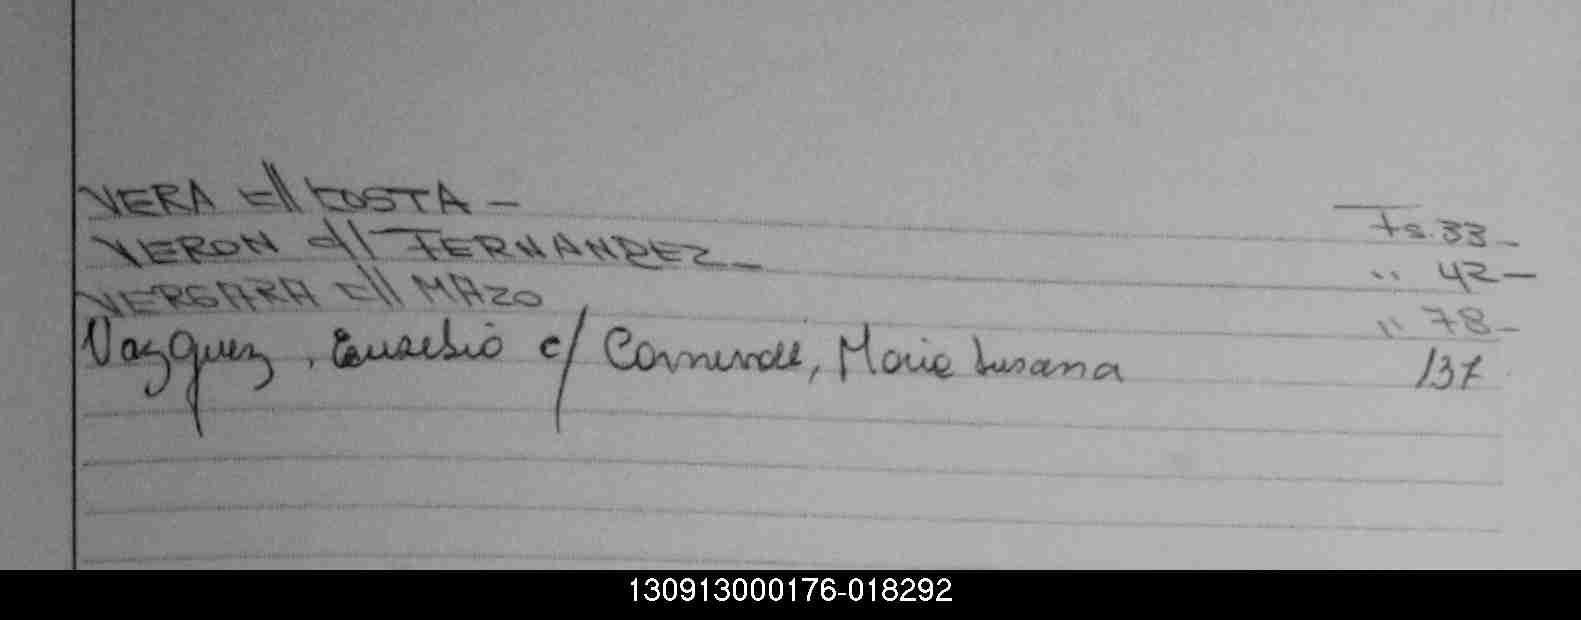 VERA c// COSTA - Fs. 33 -
VERON c// FERNANDEZ - " 42 -
VERGARA c// MAZO " 78 -
Vazquez, Eusebio c/ , Maria Susana 137
130913000176-018292